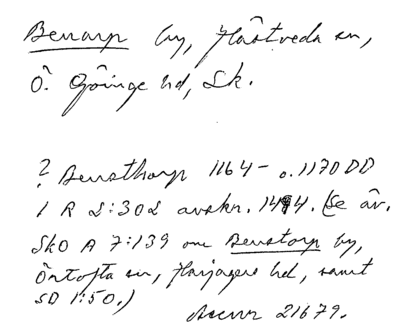 Benarp by, Hästveda sn,
Ö. Göinge hd, Sk.
? Bensthorp 1164- o. 1170 DD
1 R 2:302 avskr. 1494. (Se äv.
SkO A 7:139 om Benstorp by,
Öntofta sn, Harjagers hd, samt
SD 1:50.)
Accnr 21679.